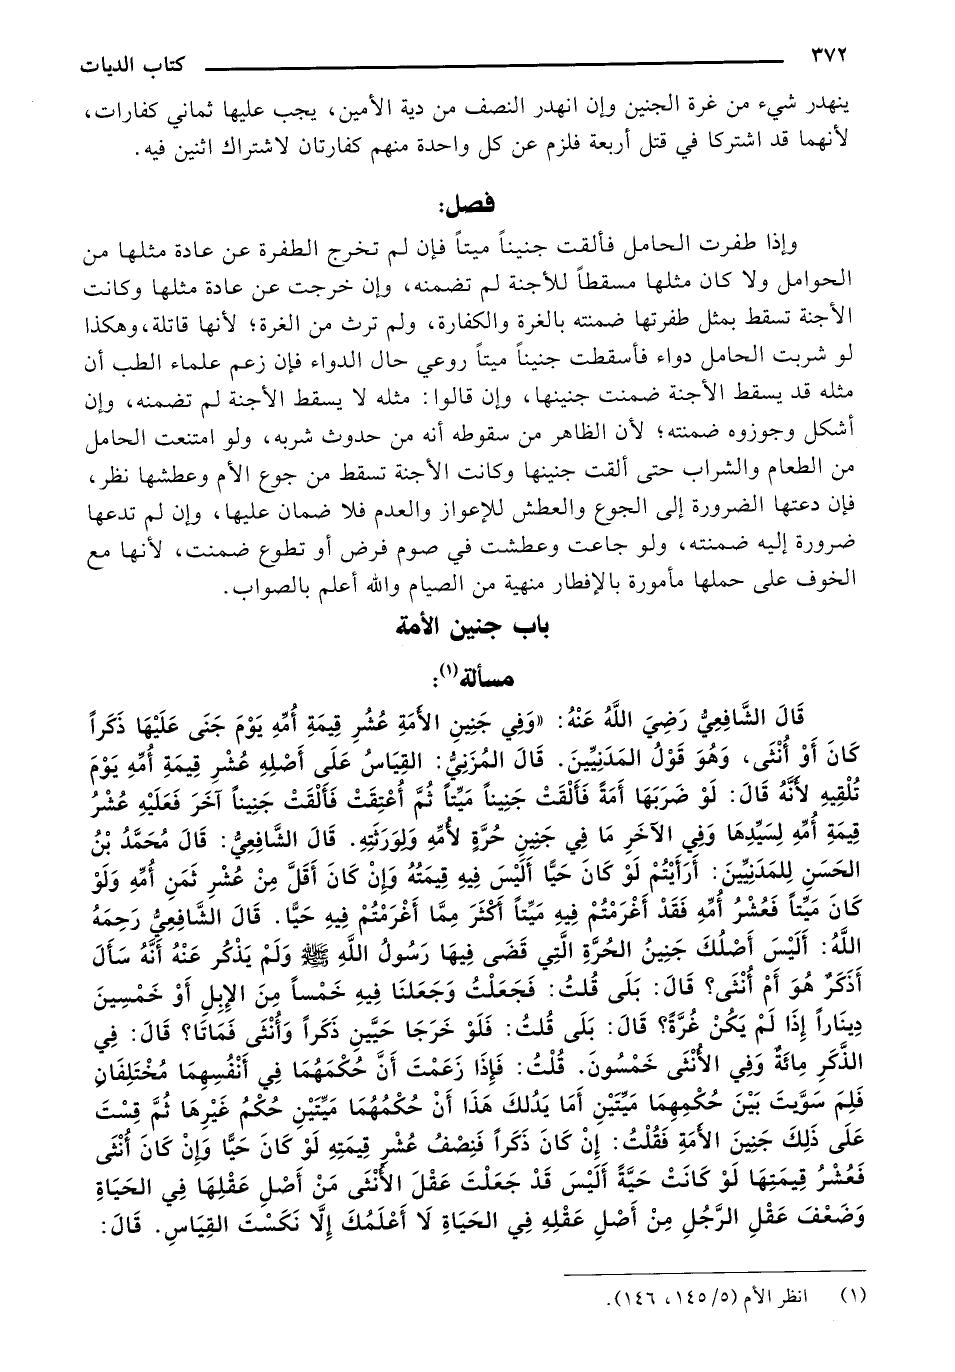 ٣٧٢
كتاب الديات
ينهدر شيء من غرة الجنين وإن انهدر النصف من دية الأمين، يجب عليها ثماني كفارات،
لأنهما قد اشتركا في قتل أربعة فلزم عن كل واحدة منهم كفارتان لاشتراك اثنين فيه.
فصل:
وإذا طفرت الحامل فألقت جنيناً ميتاً فإن لم تخرج الطفرة عن عادة مثلها من
الحوامل ولا كان مثلها مسقطاً للأجنة لم تضمنه، وإن خرجت عن عادة مثلها وكانت
الأجنة تسقط بمثل طفرتها ضمنته بالغرة والكفارة، ولم ترث من الغرة؛ لأنها قاتلة،وهكذا
لو شربت الحامل دواء فأسقطت جنيناً ميتاً روعي حال الدواء فإن زعم علماء الطب أن
مثله قد يسقط الأجنة ضمنت جنينها، وإن قالوا: مثله لا يسقط الأجنة لم تضمنه، وإن
أشكل وجوزوه ضمنته؛ لأن الظاهر من سقوطه أنه من حدوث شربه، ولو امتنعت الحامل
من الطعام والشراب حتى ألقت جنينها وكانت الأجنة تسقط من جوع الأم وعطشها نظر،
فإن دعتها الضرورة إلى الجوع والعطش للإعواز والعدم فلا ضمان عليها، وإن لم تدعها
ضرورة إليه ضمنته، ولو جاعت وعطشت في صوم فرض أو تطوع ضمنت، لأنها مع
الخوف على حملها مأمورة بالإفطار منهية من الصيام والله أعلم بالصواب.
باب جنين الأمة
مسألة(١):
قَالَ الشَّافِعِيُّ رَضِيَ اللَّهُ عَنْهُ: «وَفِي جَنِينِ الأَمَةِ عُشْرِ قِيمَةِ أُمِّهِ يَوْمَ جَنَى عَلَيْهَا ذَكَراً
كَانَ أَوْ أُنْثَى، وَهُوَ قَوْلُ المَدَنِيِّينَ. قَالَ المُزَنِيُّ: القِيَاسُ عَلَى أَصْلِهِ عُشْرِ قِيمَةِ أُمِّهِ يَوْمَ
تُلْقِيهِ لأَنَّهُ قَالَ: لَوْ ضَرَبَهَا أَمَةً فَأَلْقَتْ جَنِيناً مَيِّتاً ثُمَّ أُعْتِقَتْ فَأَلْقَتْ جَنِيناً آخَرَ فَعَلَيْهِ عُشْرُ
قِيمَةِ أُمِّهِ لِسَيِّدِهَا وَفِي الآخَرِ مَا فِي جَنِينِ حُرَّةٍ لأُمِّهِ وَلِوَرَثَتِهِ. قَالَ الشَّافِعِيُّ: قَالَ مُحَمَّدُ بْنُ
الحَسَنِ لِلمَدَنِيِّينَ: أَرَأَيْتُمْ لَوْ كَانَ حَيًّا أَلَيْسَ فِيهِ قِيمَتُهُ وَإِنْ كَانَ أَقَلَّ مِنْ عُشْرِ ثَمَنِ أُمِّهِ وَلَوْ
كَانَ مَيِّتاً فَعُشْرُ أُمِّهِ فَقَدْ أَغْرَمْتُمْ فِيهِ مَيِّتاً أَكْثَرَ مِمَّا أَغْرَمْتُمْ فِيهِ حَيًّا. قَالَ الشَّافِعِيُّ رَحِمَهُ
اللَّهُ: أَلَيْسَ أَصْلُكَ جَنِينُ الحُرَّةِ الَّتِي قَضَى فِيهَا رَسُولُ اللَّهِ ﷺ وَلَمْ يَذْكُر عَنْهُ أَنَّهُ سَأَلَ
أَذَكَرٌ هُوَ أَمْ أُنْثَى؟ قَالَ: بَلَى قُلتُ: فَجَعَلْتُ وَجَعَلنَا فِيهِ خَمْساً مِنَ الإِبِلِ أَوْ خَمْسِينَ
دِينَاراً إِذَا لَمْ يَكُنْ غُرَّةً؟ قَالَ: بَلَى قُلتُ: فَلَوْ خَرَجَا حَيَّينِ ذَكَراً وَأُنْثَى فَمَاتَا؟ قَالَ: فِي
الذَّكَرِ مِائَةٌ وَفِي الأُنْثَى خَمْسُونَ. قُلْتُ: فَإِذَا زَعَمْتَ أَنَّ حُكْمَهُمَا فِي أَنْفُسِهِمَا مُخْتَلِفَانِ
فَلِمَ سَوَّيتَ بَيْنَ حُكْمِهِمَا مَيِّتَيْنِ أَمَا يَدُلكَ هَذَا أَنْ حُكْمُهُمَا مَيِّتَيْنِ حُكْمُ غَيْرِهَا ثُمَّ قِسْتَ
عَلَى ذَلِكَ جَنِينَ الأَمَةِ فَقُلْتُ: إِنْ كَانَ ذَكَراً فَنِصْفُ عُشْرِ قِيمَتِهِ لَوْ كَانَ حَيًّا وَإِنْ كَانَ أُنْثَى
فَعُشْرُ قِيمَتِهَا لَوْ كَانَتْ حَيَّةً أَلَيْسَ قَدْ جَعَلتَ عَقْلَ الأُنْثَى مَنْ أَصْلِ عَقْلِهَا فِي الحَيَاةِ
وَضَعْفَ عَقْلِ الرَّجُلِ مِنْ أَصْلِ عَقْلِهِ فِي الحَيَاةِ لَا أَعْلَمُكَ إِلَّا نَكَسْتَ القِيَاسِ. قَالَ:
(١) انظر الأم (١٤٥/٥، ١٤٦).